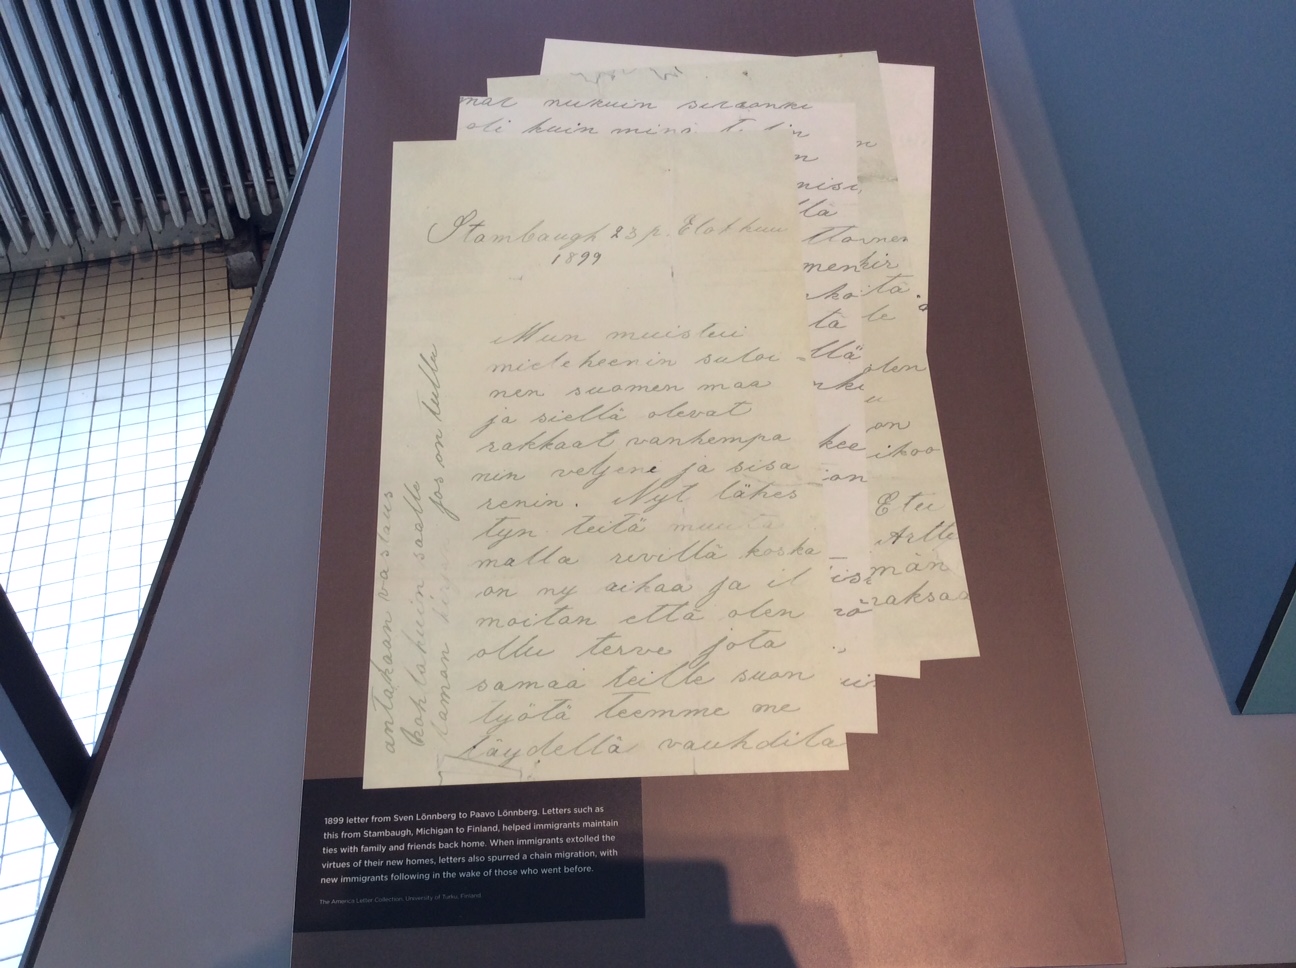 Stambaugh 23 p. Elokkuu
1899
Mun muistui
mieleheenin suloi
nen suomen maa
ja siellä olevat
rakkaat vanhempa
nin veljeni ja sisa
renin. Nyt lähes
tyn teitä muuta
malla rivillä koska
on ny aikaa ja il
moitan että olen
ollu terve jota
samaa teille suon
työtä teemme me
täydellä vauhdila
antakaan vastaus
kohta kuin saatte
taman jos on tullu
mat nukuin
oli kuin
nisi,
llä
ta
llä
kee
ion
tä
le
olen
u
on
ikoo
Etu
män
1899 letter from Sven Lönnberg to Paavo Lönnberg. Letters such as
this from Stambaugh, Michigan to Finland, helped immigrants maintain
ties with family and friends back home. When immigrants extolled the
virtues of their new homes, letters also spurred a chain migration, with
new immigrants following in the wake of those who went before.
The America Letter Collection, University of Turku, Finland